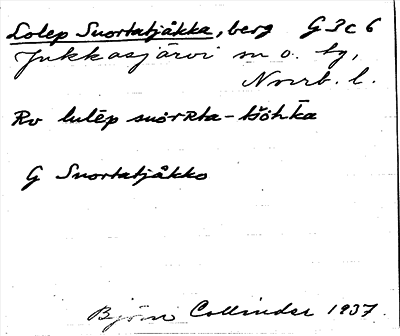 Lolep Snortatjåkka, berg G3c6
Jukkasjärvi sn o. tg,
Norrb. l.
Rv lulēp snorRta-tšohka
G Snortatjåkko
Björn Collinder 1937.